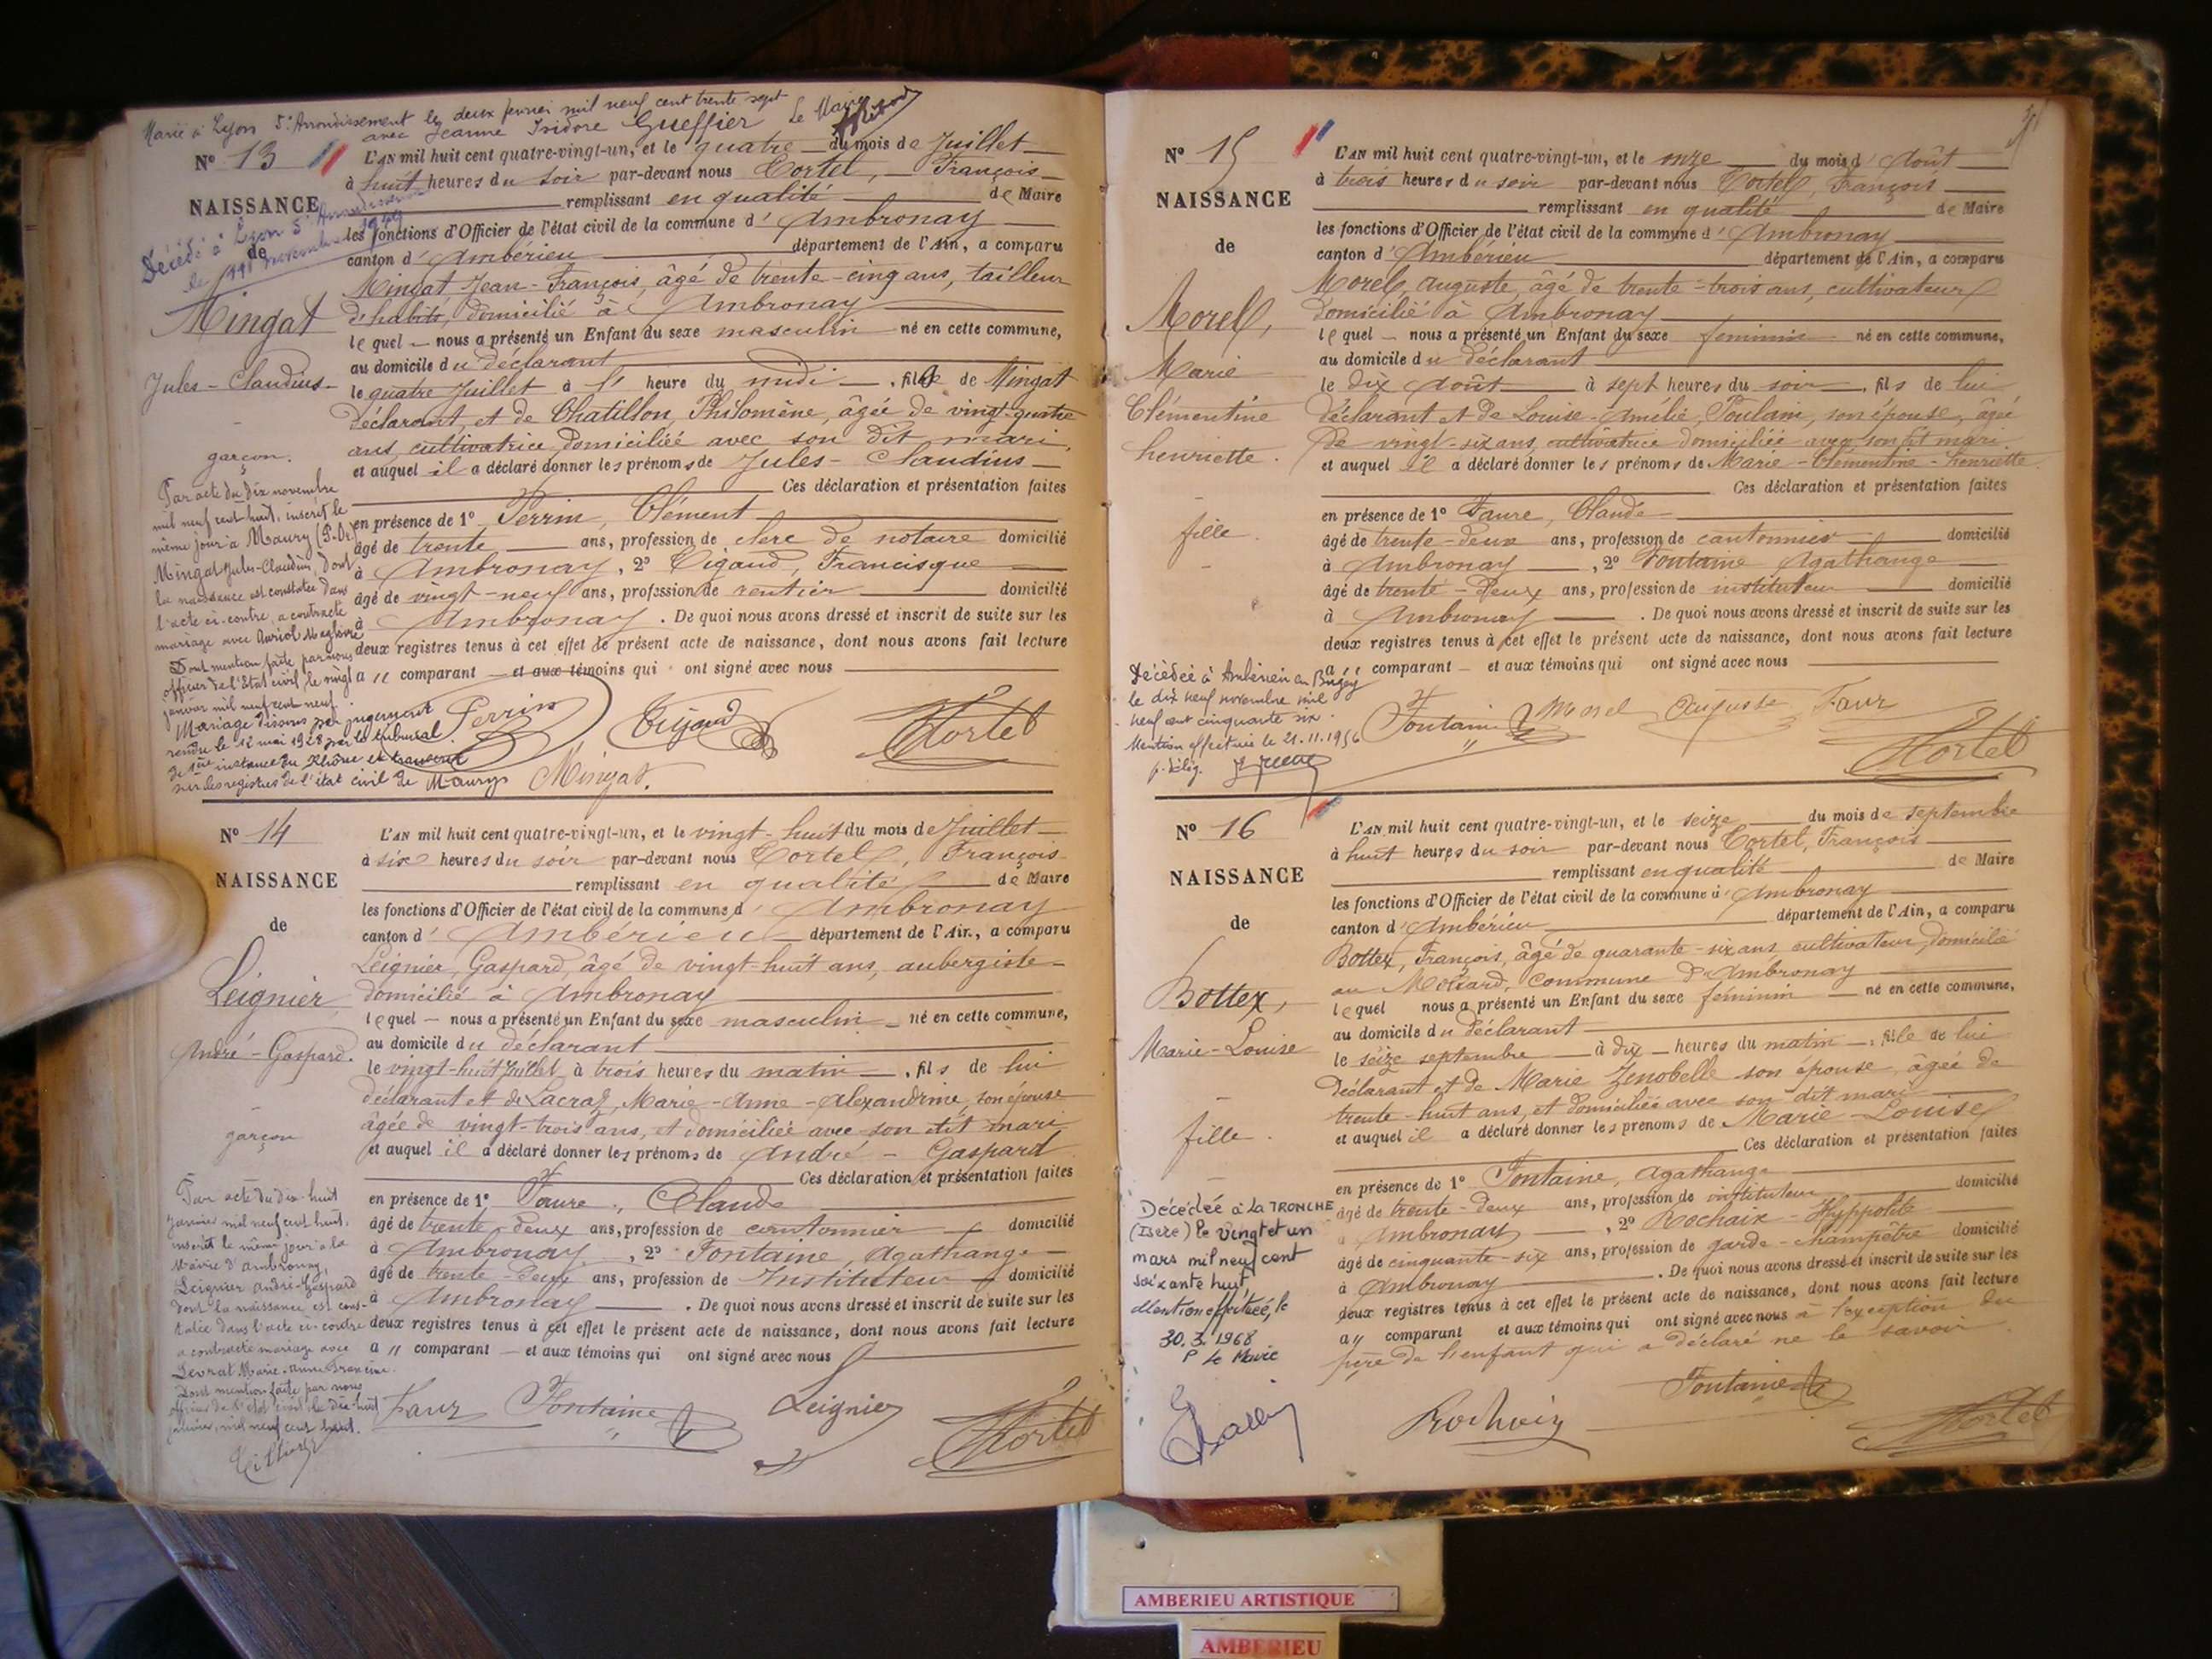 Marié à Lyon 5e Arrondissement le deux février mil neuf cent trente sept
avec Jeanne Isidore Gueffier Le Maire
N° 13
NAISSANCE
de
Décédé à Lyon 5e Arrondissement
le novembre 1949
Mingat
Jules-Claudius-
garçon.
Par acte du dix novembre
mil neuf cent huit, inscrit le
même jour à Maury (P.-Or.)
Mingat Jules-Claudius, dont
la naissance est constatée dans
l'acte ci-contre, a contracté
mariage avec Auriol
Dont mention faite par nous
officier de l'Etat civil le vingt
janvier mil neuf cent neuf.
Mariage dissous par jugement
rendu le 12 mai 1928 par le tribunal
de 1ère instance du Rhône et transcrit
sur les registres de l'état civil de Maury
L'AN mil huit cent quatre-vingt-un, et le quatre du mois de Juillet
à huit heures du soir par-devant nous Tortel, François
remplissant en qualité de Maire
les fonctions d'Officier de l'état civil de la commune d'Ambronay
canton d'Ambérieu département de l'Ain, a comparu
Mingat Jean-François, âgé de trente-cinq ans, tailleur
d'habits, domicilié à Ambronay
lequel nous a présenté un Enfant du sexe masculin né en cette commune,
au domicile du déclarant
le quatre Juillet à heure du midi, fils de Mingat
déclarant, et de Chatillon, Philomène, âgée de vingt-quatre
ans, cultivatrice domiciliée avec son dit mari,
et auquel il a déclaré donner les prénoms de Jules-Claudius
Ces déclaration et présentation faites
en présence de 1° Perrin, Clément
âgé de trente ans, profession de clerc de notaire domicilié
à Ambronay, 2° Tigaud, Francisque
âgé de vingt-neuf ans, profession de rentier domicilié
à Ambronay. De quoi nous avons dressé et inscrit de suite sur les
deux registres tenus à cet effet le présent acte de naissance, dont nous avons fait lecture
a 11 comparant et aux témoins qui ont signé avec nous
Perrin Tigaud Tortel
Mingat.
N° 14
NAISSANCE
de
Leignier
André-Gaspard.
garçon
Par acte du dix-huit
janvier mil neuf cent huit,
inscrit le même jour à la
Mairie d'Ambronay,
Leignier André-Gaspard
dont la naissance est cons-
tatée dans l'acte ci-contre
a contracté mariage avec
Levrat Marie-Anne-Francine.
Dont mention faite par nous
officier de l'état civil le dix-huit
janvier, mil neuf cent huit.
L'AN mil huit cent quatre-vingt-un, et le vingt-huit du mois de Juillet
à six heures du soir par-devant nous Tortel, François
remplissant en qualité de Maire
les fonctions d'Officier de l'état civil de la commune d'Ambronay
canton d'Ambérieu département de l'Ain, a comparu
Leignier, Gaspard, âgé de vingt-huit ans, aubergiste
domicilié à Ambronay
lequel nous a présenté un Enfant du sexe masculin né en cette commune,
au domicile du déclarant
le vingt-huit Juillet à trois heures du matin, fils de lui
déclarant et de Lacraz, Marie-Anne-Alexandrine, son épouse
âgée de vingt-trois ans, et domiciliée avec son dit mari
et auquel il a déclaré donner les prénoms de André-Gaspard
Ces déclaration et présentation faites
en présence de 1° Faure, Claude
âgé de trente-deux ans, profession de cantonnier domicilié
à Ambronay, 2° Fontaine, Agathange
âgé de trente-deux ans, profession de Instituteur domicilié
à Ambronay. De quoi nous avons dressé et inscrit de suite sur les
deux registres tenus à cet effet le présent acte de naissance, dont nous avons fait lecture
a 11 comparant et aux témoins qui ont signé avec nous
Faur Fontaine Leignier Tortel
N° 15
NAISSANCE
de
Morel,
Marie
Clémentine
henriette.
fille.
Décédée à Ambérieu en Bugey
le dix neuf novembre mil
neuf cent cinquante six.
Mention effectuée le 21.11.1956
L'AN mil huit cent quatre-vingt-un, et le onze du mois d'Août
à trois heures du soir par-devant nous Tortel, François
remplissant en qualité de Maire
les fonctions d'Officier de l'état civil de la commune d'Ambronay
canton d'Ambérieu département de l'Ain, a comparu
Morel, Auguste, âgé de trente-trois ans, cultivateur
domicilié à Ambronay
lequel nous a présenté un Enfant du sexe féminin né en cette commune,
au domicile du déclarant
le dix Août à sept heures du soir, fils de lui
déclarant et de Louise-Amélie, Poulain, son épouse, âgée
de vingt-six ans, cultivatrice domiciliée avec son dit mari
et auquel il a déclaré donner les prénoms de Marie-Clémentine-henriette.
Ces déclaration et présentation faites
en présence de 1° Faure, Claude
âgé de trente-deux ans, profession de cantonnier domicilié
à Ambronay, 2° Fontaine Agathange
âgé de trente-deux ans, profession de instituteur domicilié
à Ambronay. De quoi nous avons dressé et inscrit de suite sur les
deux registres tenus à cet effet le présent acte de naissance, dont nous avons fait lecture
a 11 comparant et aux témoins qui ont signé avec nous
Fontaine Morel Auguste Faur
Tortel
N° 16
NAISSANCE
de
Bottex,
Marie-Louise
fille.
Décédée à LA TRONCHE
(Isère) le vingt et un
mars mil neuf cent
soixante huit
Mention effectuée, le
30.3.1968
P le Maire
L'AN mil huit cent quatre-vingt-un, et le seize du mois de septembre
à huit heures du soir par-devant nous Tortel, François
remplissant en qualité de Maire
les fonctions d'Officier de l'état civil de la commune d'Ambronay
canton d'Ambérieu département de l'Ain, a comparu
Bottex, François, âgé de quarante-six ans, cultivateur, domicilié
au commune d'Ambronay
lequel nous a présenté un Enfant du sexe féminin né en cette commune,
au domicile du déclarant
le seize septembre à dix heures du matin, fille de lui
déclarant et de Marie Zenobelle son épouse, âgée de
trente-huit ans, et domiciliée avec son dit mari
et auquel il a déclaré donner les prénoms de Marie-Louise
Ces déclaration et présentation faites
en présence de 1° Fontaine, Agathange
âgé de trente-deux ans, profession de instituteur domicilié
à Ambronay, 2° Rochaix-Hyppolite
âgé de cinquante-six ans, profession de garde-champêtre domicilié
à Ambronay. De quoi nous avons dressé et inscrit de suite sur les
deux registres tenus à cet effet le présent acte de naissance, dont nous avons fait lecture
a 11 comparant et aux témoins qui ont signé avec nous à l'exception du
père de l'enfant qui a déclaré ne le savoir
Fontaine
Rochaix Tortel
AMBERIEU ARTISTIQUE
AMBERIEU